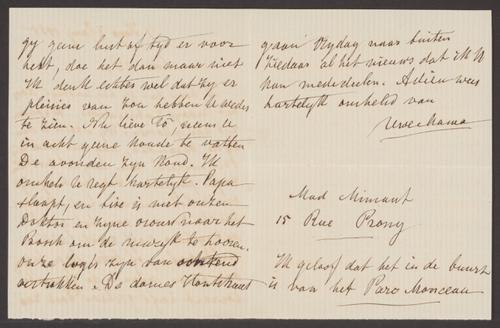 gy geene lust of tyd er voor
hebt, doe het dan maar niet
Ik denk echter wel dat zy er
pleisier van zou hebben U weder
te zien. Nu lieve To, neem U
in acht geene koude te vatten
De avonden zyn koud. Ik
omhels U regt hartelyk. Papa
slaapt, en Lize is met onzen
Doktor en zyne vrouw naar het
Bosch om de muzyk te hooren.
onze logés zyn van ochtend
vertrokken. De dames
gaan Vrydag naar buiten
Ziedaar al het nieuws dat ik U
kan mededeelen. Adieu wees
hartelyk omhelsd van
Uwe Mama
Mad Mimaut
15 Rue Prony
Ik geloof dat het in de buurt
is van het Parc Monceau